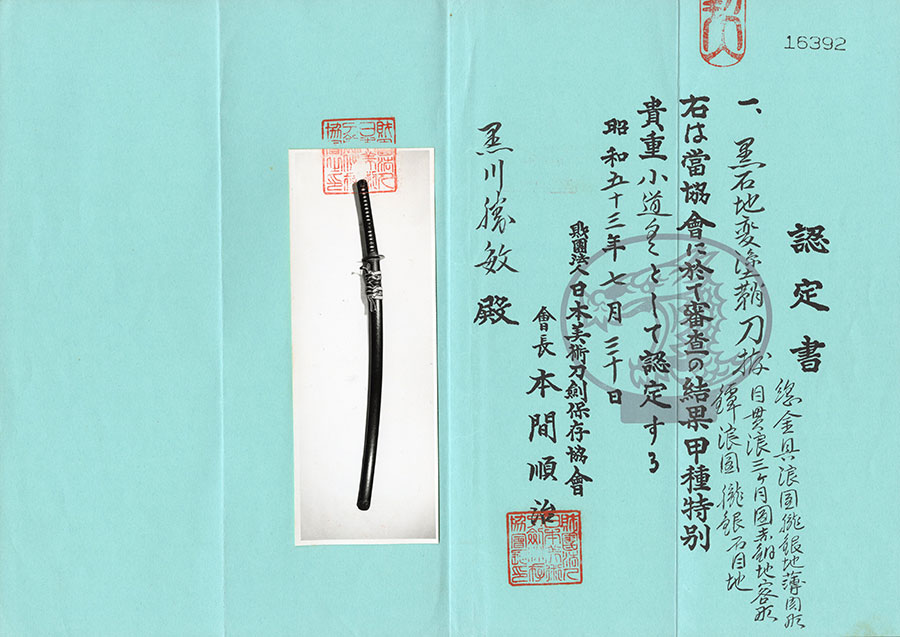 16392
認定書
一、黒石地変塗鞘刀拵
総金具浪図朧銀地薄肉彫
目貫浪三ヶ月図赤銅地容彫
鐔浪図朧銀石目地
右は當協會に於て審査の結果甲種特別
貴重小道具として認定する
昭和五十三年七月三十日
財團法人日本美術刀劍保存協會
會長 本間順治
黒川勝敏殿